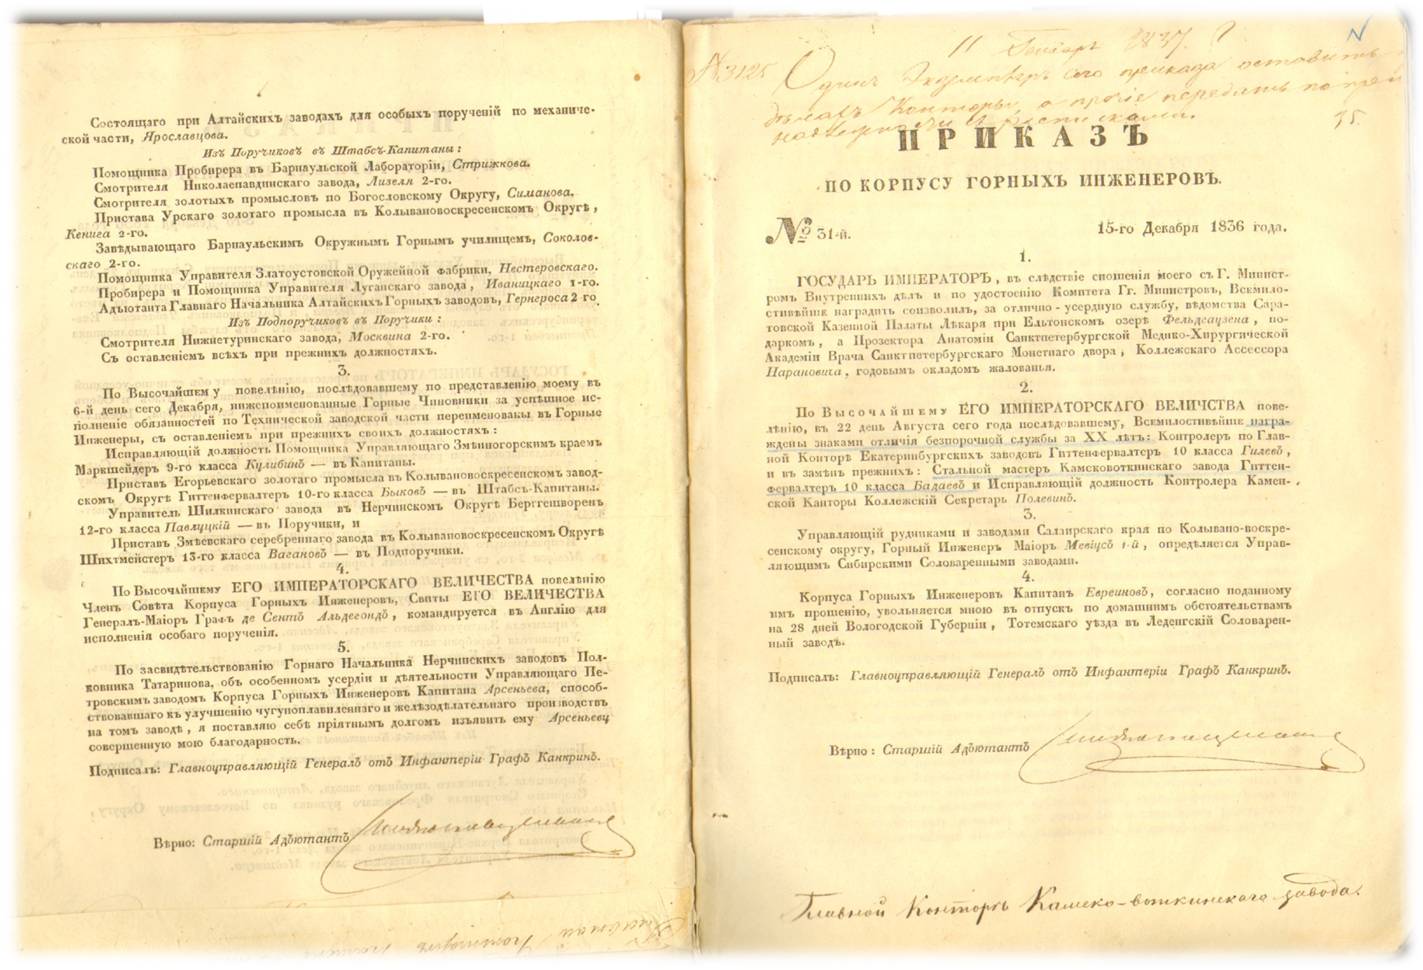 Состоящаго при Алтайскихъ заводахъ для особыхъ порученій по механиче-
ской части, Ярославцова.
Изъ Поручиковъ въ Штабсъ-Капитаны:
Помощника Пробирера въ Барнаульской Лабораторіи, Стрижкова.
Смотрителя Николаепавдинскаго завода, Лизеля 2-го.
Смотрителя золотыхъ промысловъ по Богословскому Округу, Симанова.
Пристава Урскаго золотаго промысла въ Колывановоскресенскомъ Округѣ,
Кенига 2-го.
Завѣдывающаго Барнаульскимъ Окружнымъ Горнымъ училищемъ, Соколов-
скаго 2-го.
Помощника Управителя Златоустовской Оружейной Фабрики, Нестеровскаго.
Пробирера и Помощника Управителя Луганскаго завода, Иваницкаго 1-го.
Адъютанта Главнаго Начальника Алтайскихъ Горныхъ заводовъ, Гернероса 2 го
Изъ Подпоручиковъ въ Поручики:
Смотрителя Нижнетуринскаго завода, Москвина 2-го.
Съ оставленіемъ всѣхъ при прежнихъ должностяхъ.
3.
По Высочайшему повелѣнію, послѣдовавшему по представленію моему въ
6-й день сего Декабря, нижепоименованные Горные Чиновники за успѣшное ис-
полненіе обязанностей по Технической заводской части переименованы въ Горные
Инженеры, съ оставленіемъ при прежнихъ своихъ должностяхъ:
Исправляющій должность Помощника Управляющаго Змѣиногорскимъ краемъ
Маркшейдеръ 9-го класса Кулибинъ — въ Капитаны.
Приставъ Егорьевскаго золотаго промысла въ Колывановоскресенскомъ завод-
скомъ Округѣ Гиттенфервалтеръ 10-го класса Быковъ — въ Штабсъ-Капитаны.
Управитель Шилкинскаго завода въ Нерчинскомъ Округѣ Берггешворенъ
12-го класса Павлуцкій — въ Поручики, и
Приставъ Змѣевскаго серебреннаго завода въ Колывановоскресенскомъ Округѣ
Шихтмейстеръ 13-го класса Вагановъ — въ Подпоручики.
4.
По Высочайшему ЕГО ИМПЕРАТОРСКАГО ВЕЛИЧЕСТВА повелѣнію
Членъ Совѣта Корпуса Горныхъ Инженеровъ, Свиты ЕГО ВЕЛИЧЕСТВА
Генералъ-Маіоръ Графъ де Сентъ Альдегондъ, командируется въ Англію для
исполненія особаго порученія.
5.
По засвидѣтельствованію Горнаго Начальника Нерчинскихъ заводовъ Пол-
ковника Татаринова, объ особенномъ усердіи и дѣятельности Управляющаго Пе-
тровскимъ заводомъ Корпуса Горныхъ Инженеровъ Капитана Арсеньева, способ-
ствовавшаго къ улучшенію чугуноплавиленнаго и желѣзодѣлательнаго производствъ
на томъ заводѣ, я поставляю себѣ пріятнымъ долгомъ изъявить ему Арсеньеву
совершенную мою благодарность.
Подписалъ: Главноуправляющій Генералъ отъ Инфантеріи Графъ Канкринъ.
Вѣрно: Старшій Адъютантъ
№ 3125
11 1837.
Одинъ Экземпляръ сего приказа оставить
Конторы, а прочіе передать
ПРИКАЗЪ
ПО КОРПУСУ ГОРНЫХЪ ИНЖЕНЕРОВЪ.
№ 31-й. 15-го Декабря 1836 года.
1.
ГОСУДАРЬ ИМПЕРАТОРЪ, въ слѣдствіе сношенія моего съ Г. Минист-
ромъ Внутреннихъ дѣлъ и по удостоенію Комитета Гг. Министровъ, Всемило-
стивѣйше наградить соизволилъ, за отлично-усердную службу, вѣдомства Сара-
товской Казенной Палаты Лѣкаря при Ельтонскомъ озерѣ Фельдгаузена, по-
даркомъ, а Прозектора Анатоміи Санктпетербургской Медико-Хирургической
Академіи Врача Санктпетербургскаго Монетнаго двора, Коллежскаго Ассессора
Нарановича, годовымъ окладомъ жалованья.
2.
По Высочайшему ЕГО ИМПЕРАТОРСКАГО ВЕЛИЧСТВА пове-
лѣнію, въ 22 день Августа сего года послѣдовавшему, Всемилостивѣйше награ-
ждены знаками отличія безпорочной службы за XX лѣтъ: Контролеръ по Глав-
ной Конторѣ Екатеринбургскихъ заводовъ Гиттенфервалтеръ 10 класса Гилевъ,
и въ замѣнъ прежнихъ: Стальной мастеръ Камсковоткинскаго завода Гиттен-
фервалтеръ 10 класса Бадаевъ и Исправляющій должность Контролера Камен-
ской Канторы Коллежскій Секретарь Полевинъ.
3.
Управляющій рудниками и заводами Салаирскаго края по Колывано-воскре-
сенскому округу, Горный Инженеръ Маіоръ Мевіусъ 1-й, опредѣляется Управ-
ляющимъ Сибирскими Соловаренными заводами.
4.
Корпуса Горныхъ Инженеровъ Капитанъ Евреиновъ, согласно поданному
имъ прошенію, увольняется мною въ отпускъ по домашнимъ обстоятельствамъ
на 28 дней Вологодской Губерніи, Тотемскаго уѣзда въ Леденгскій Соловарен-
ный заводъ.
Подписалъ: Главноуправляющій Генералъ отъ Инфантеріи Графъ Канкринъ.
Вѣрно: Старшій Адъютантъ
Главной Конторѣ Камско-воткинскаго завода.